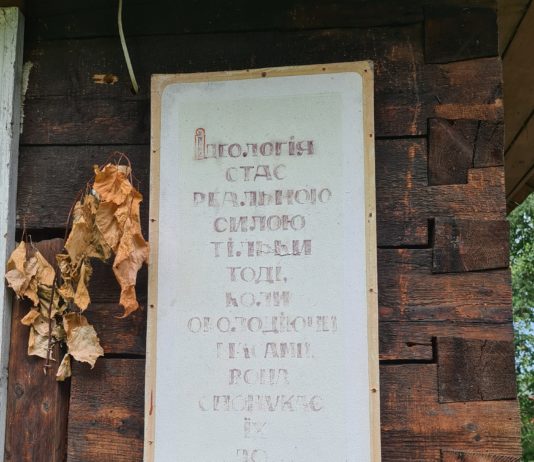 Ідеологія
стає
реальною
силою
тільки
тоді,
коли
оволодіючи
масами,
вона
спонукає
їх
до